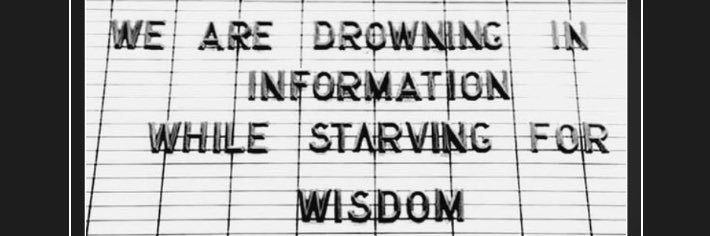 WE ARE DROWNING IN
INFORMATION
WHILE STARVING FOR
WISDOM